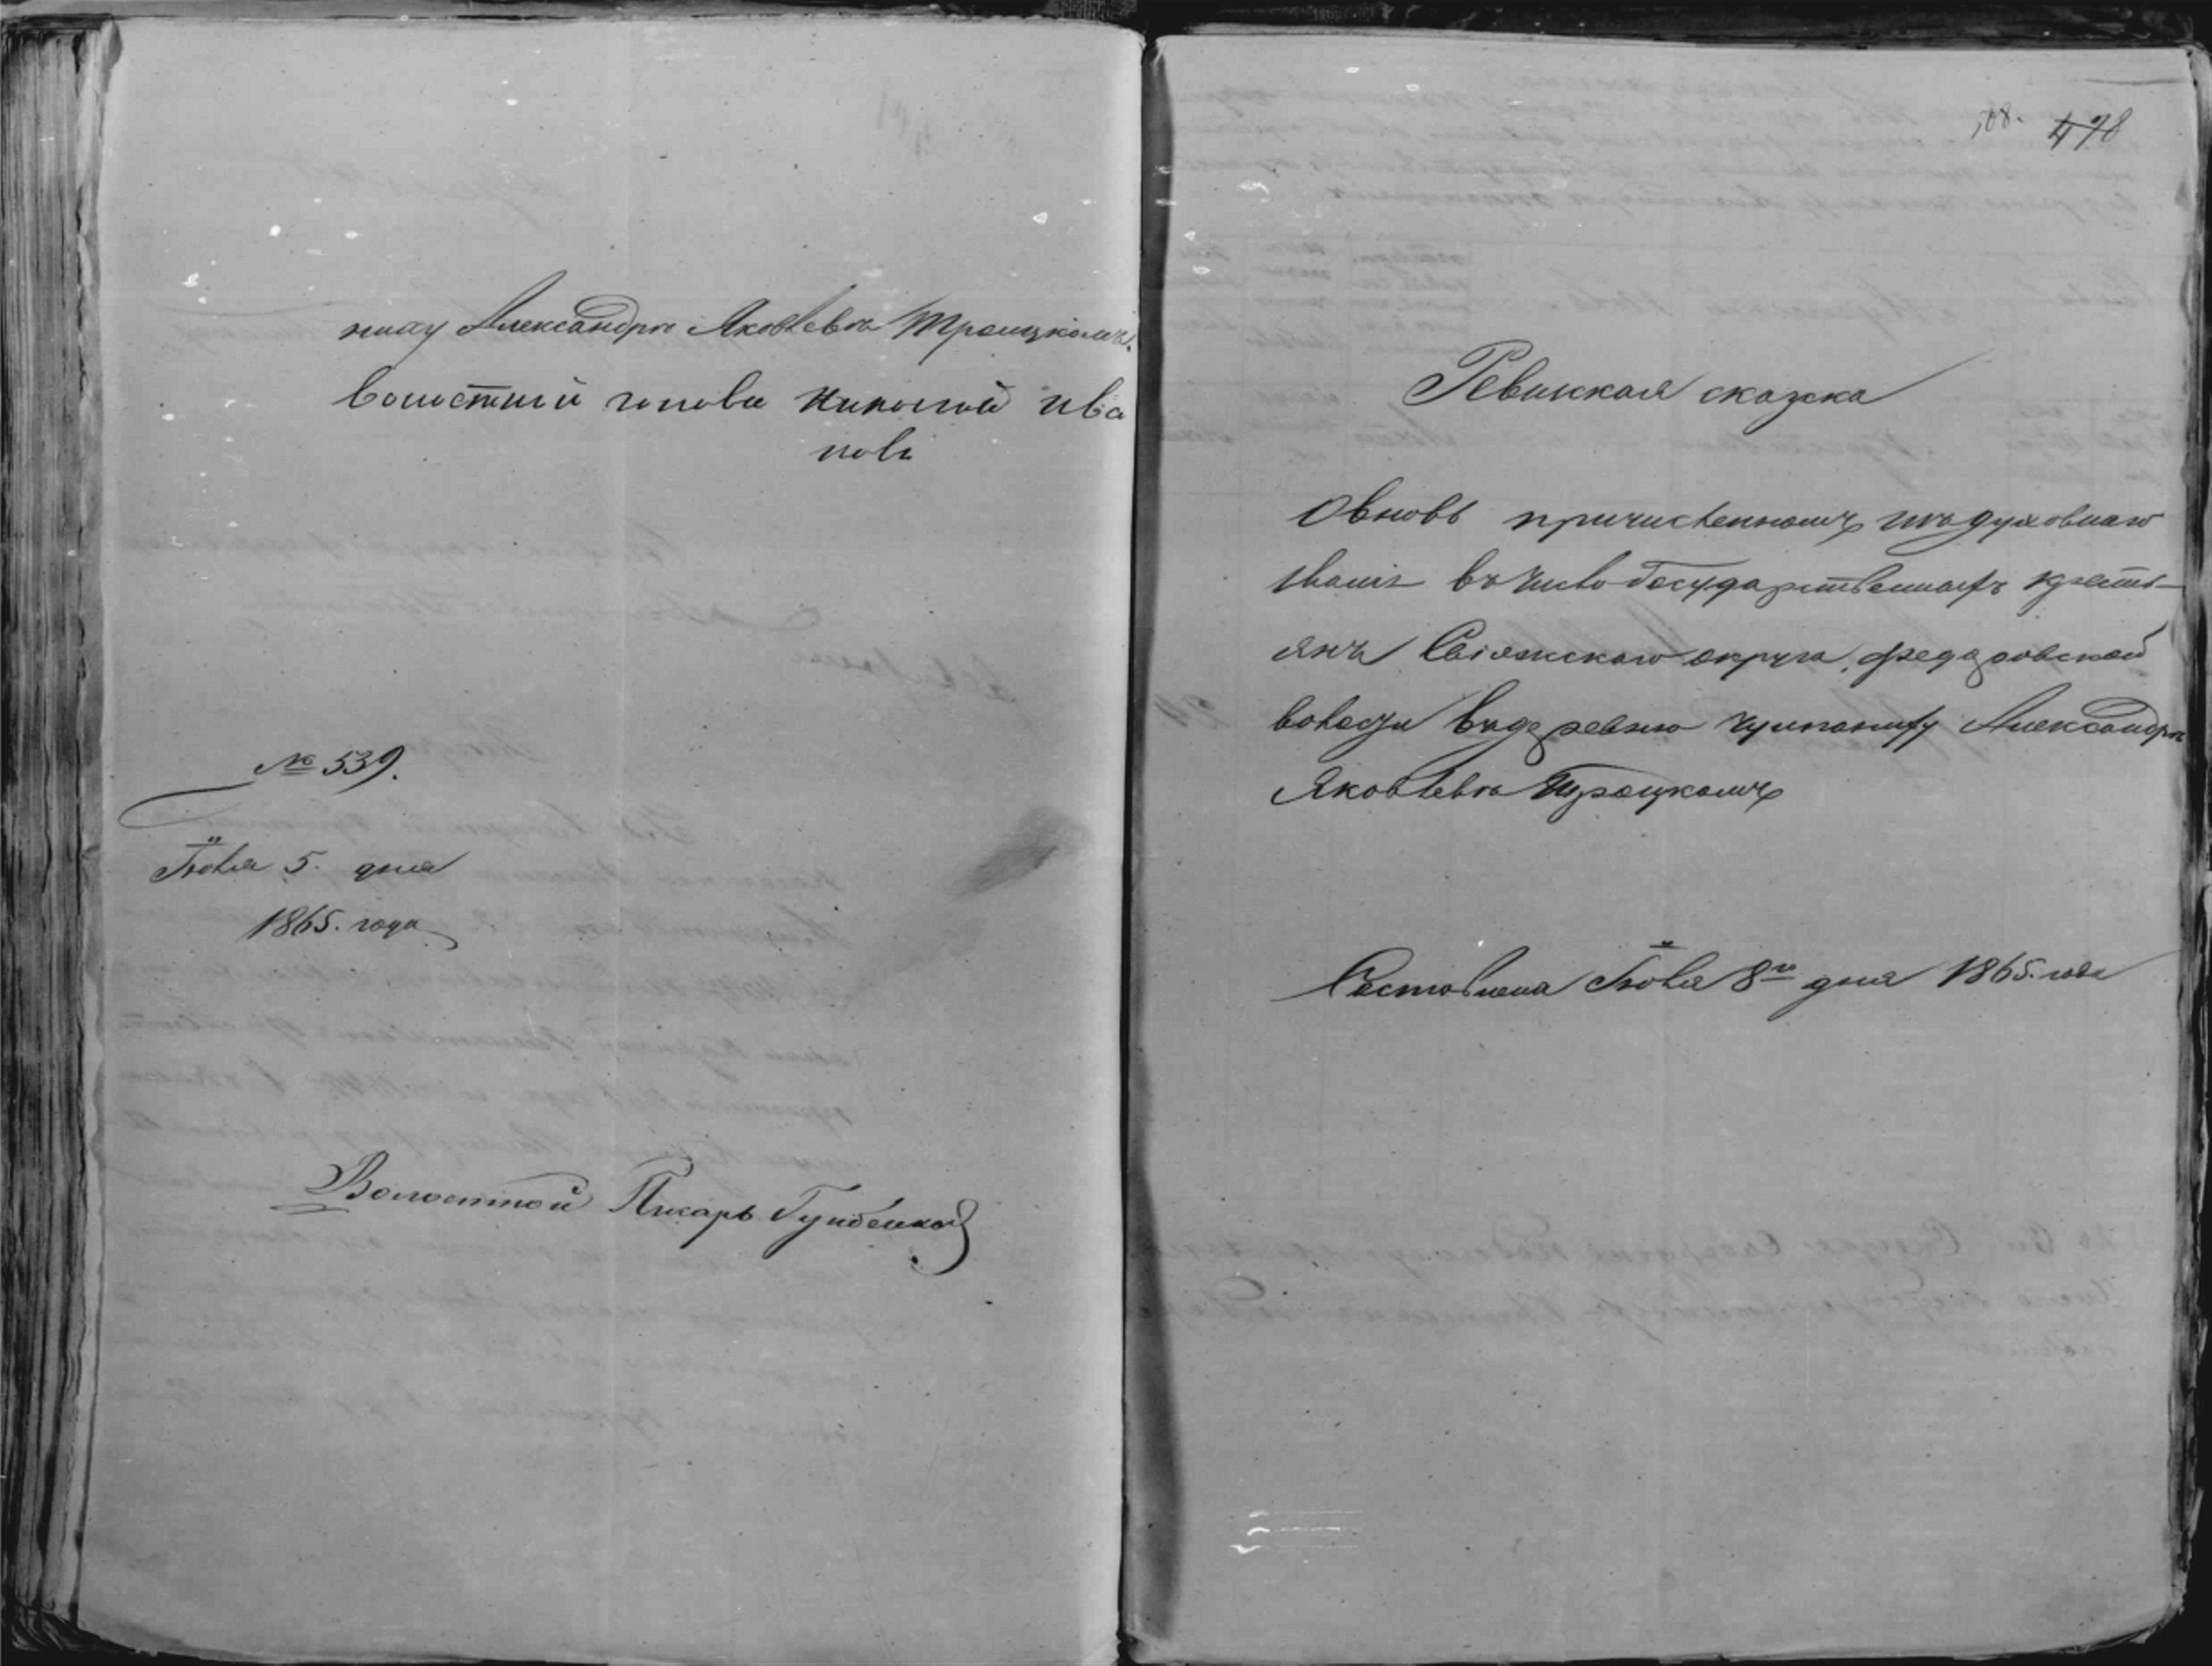 нику Александрѣ Яковлевѣ Троицкомъ.
волостной голова Николай ива
новъ
№ 539.
Іюля 5. дня
1865. года
Волостной Писарь
508. 478
Ревизская сказка
О вновь причисленномъ изъ духовнаго
званія въ число Государственныхъ кресть-
янъ Свіяжскаго округа, Федоровской
волости въ деревню Александрѣ
Яковлевѣ Троицкомъ
Составлена Іюля 8го дня 1865. года